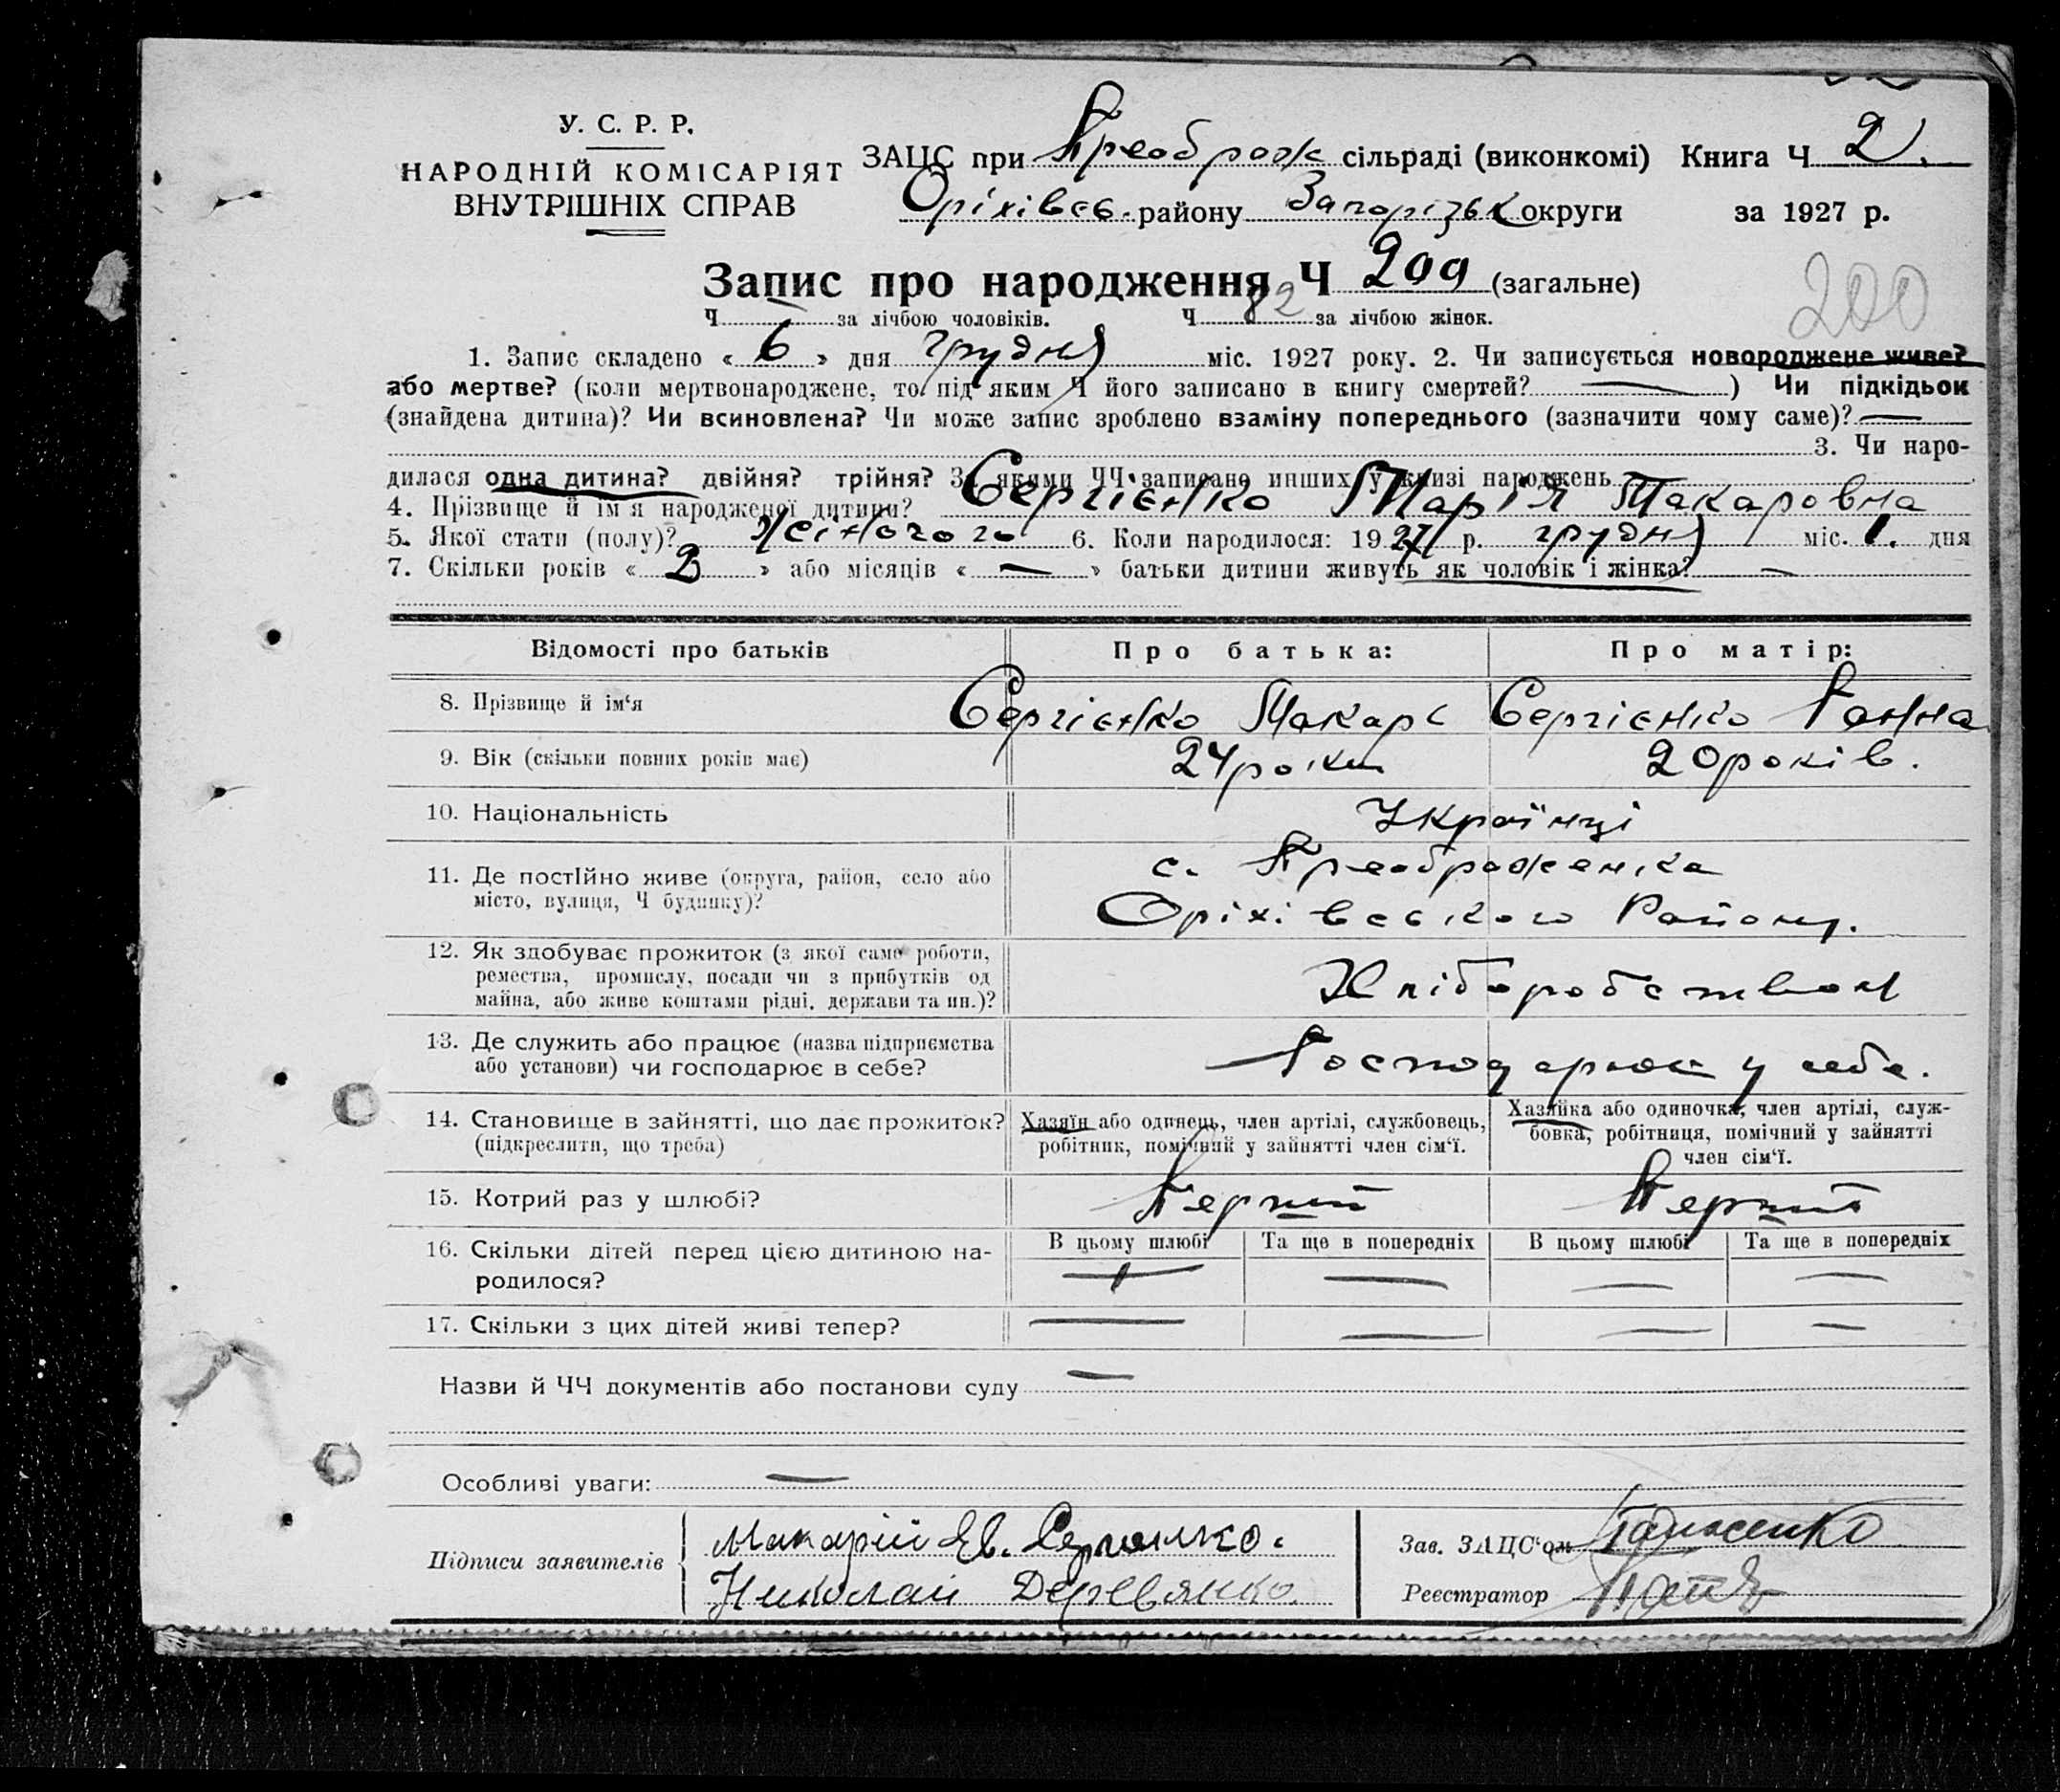 У. С. Р. Р.
НАРОДНІЙ КОМІСАРІЯТ
ВНУТРІШНІХ СПРАВ
ЗАЦС при Преображ сільраді (виконкомі) Книга Ч 2.
Оріхівсь. району Запорізьк округи за 1927 р.
Запис про народження Ч 209 (загальне)
200
Ч — за лічбою чоловіків. Ч 82 за лічбою жінок.
1. Запис складено « 6 » дня грудня міс. 1927 року. 2. Чи записується новороджене живе?
або мертве? (коли мертвонароджене, то під яким Ч його записано в книгу смертей? — ) Чи підкідьок
(знайдена дитина)? Чи всиновлена? Чи може запис зроблено взаміну попереднього (зазначити чому саме)? —
3. Чи наро-
дилася одна дитина? двійня? трійня? За якими ЧЧ записане инших у книзі народжень
4. Прізвище й ім'я народженої дитини? Сергієнко Марія Макаровна
5. Якої стати (полу)? Жіночого 6. Коли народилося: 1927 р. грудня міс. 1. дня
7. Скільки років « 2 » або місяців « — » батьки дитини живуть як чоловік і жінка? —
Відомості про батьків Про батька: Про матір:
8. Прізвище й ім'я Сергієнко Макарь Сергієнко Ганна
9. Вік (скільки повних років має) 24 роки 20 років.
10. Національність Українці
11. Де постійно живе (округа, район, село або
місто, вулиця, Ч будинку)?
с. Преображенка
Оріхівського Району.
12. Як здобуває прожиток (з якої саме роботи,
ремества, промислу, посади чи з прибутків од
майна, або живе коштами рідні, держави та ин.)?
Хліборобством
13. Де служить або працює (назва підприємства
або установи) чи господарює в себе?
Господарюють у себе.
14. Становище в зайнятті, що дає прожиток?
(підкреслити, що треба)
Хазяїн або одинець, член артілі, службовець,
робітник, помічний у зайнятті член сім'ї.
Хазяйка або одиночка, член артілі, служ-
бовка, робітниця, помічний у зайнятті
член сім'ї.
15. Котрий раз у шлюбі? Перший Перший
16. Скільки дітей перед цією дитиною на-
родилося?
В цьому шлюбі Та ще в попередніх В цьому шлюбі Та ще в попередніх
— — — —
17. Скільки з цих дітей живі тепер? — — — —
Назви й ЧЧ документів або постанови суду —
Особливі уваги: —
Підписи заявителів
Макарій Ев. Сергиенко.
Николай Деревянко.
Зав. ЗАЦС'ом
Реєстратор